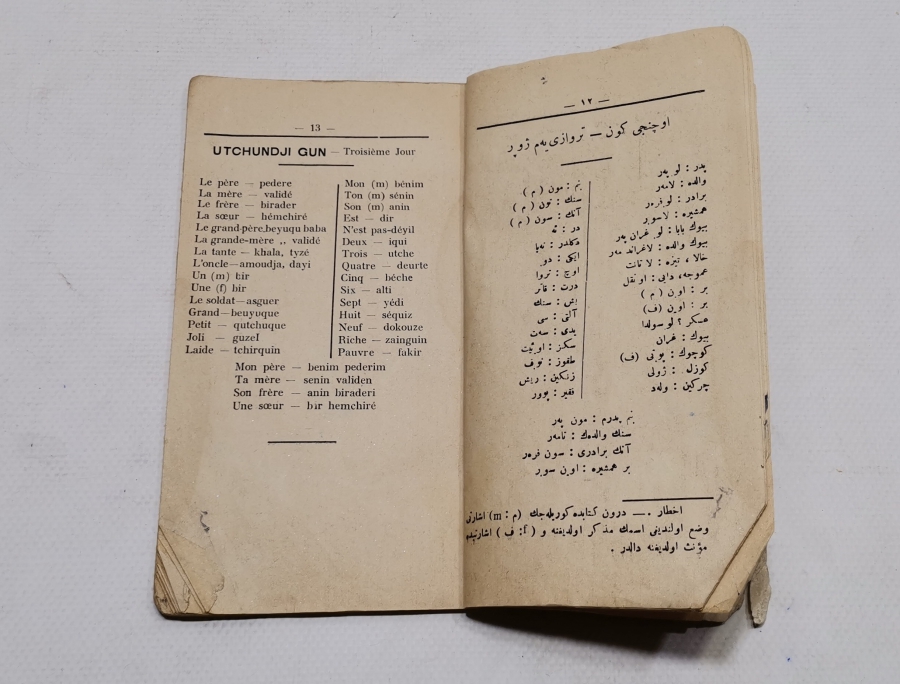 — 13 —
UTCHUNDJI GUN — Troisième Jour
Le père — pedere
La mère — validé
Le frère — birader
La sœur — hémchiré
Le grand-père, beyuqu baba
La grande-mère ,, validé
La tante — khala, tyzé
L'oncle — amoudja, dayi
Un (m) bir
Une (f) bir
Le soldat — asguer
Grand — beuyuque
Petit — qutchuque
Joli — guzel
Laide — tchirquin
Mon (m) bénim
Ton (m) sénin
Son (m) anin
Est — dir
N'est pas - déyil
Deux — iqui
Trois — utche
Quatre — deurte
Cinq — béche
Six — alti
Sept — yédi
Huit — séquiz
Neuf — dokouze
Riche — zainguin
Pauvre — fakir
Mon père — benim pederim
Ta mère — senin validen
Son frère — anin biraderi
Une sœur — bir hemchiré
— ١٢ —
اوچنجی كون — تروازی‌یەم ژور
پدر : لو پەر
والده : لامەر
برادر : لو فرەر
همشیره : لا سور
بیوك بابا : لو غران پەر
بیوك والده : لا غراند مەر
خالا ، تیزه : لا تانت
عموجه، دایی : اونقل
بر : اوین ( م )
بر : اوین (ف)
عسكر ؟ لو سولدا
بیوك : غران
كوچوك : پوتی (ف)
كوزل : ژولی
چركین : ولەد
بنم : مون ( م )
سنك : تون ( م )
آنك : سون ( م )
در : ئە
دكلدر : نەپا
ایكی : دو
اوچ : تروا
درت : قاتر
بش : سنك
آلتی : سی
یدی : سەت
سكز : اوئیت
طقوز : نوف
زنكین : ریش
فقیر : پوور
بنم پدرم : مون پەر
سنك والدەك : تامەر
آنك برادری : سون فرەر
بر همشیره : اوین سور
اخطار . — درون كتابده كوریله‌جك (م : m) اشارتی
وضع اولندیغی اسمك مذكر اولدیغنه و ( f: ف ) اشارتیده
مؤنث اولدیغنه دالدر .